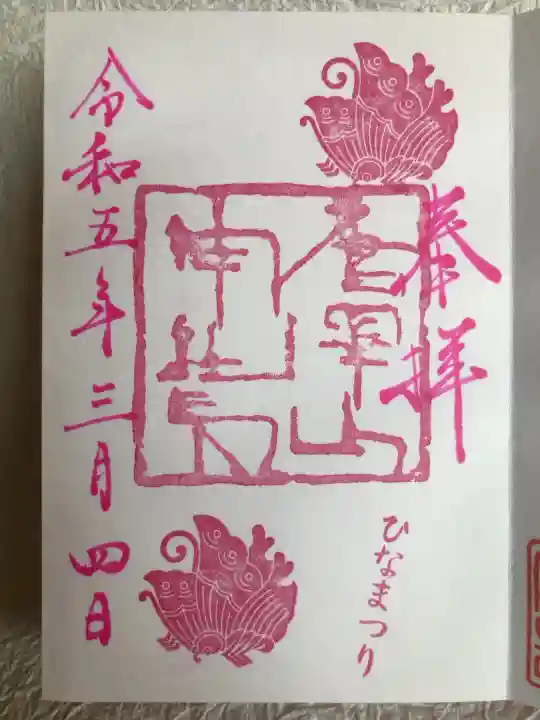 奉拝
ひなまつり
令和五年三月四日